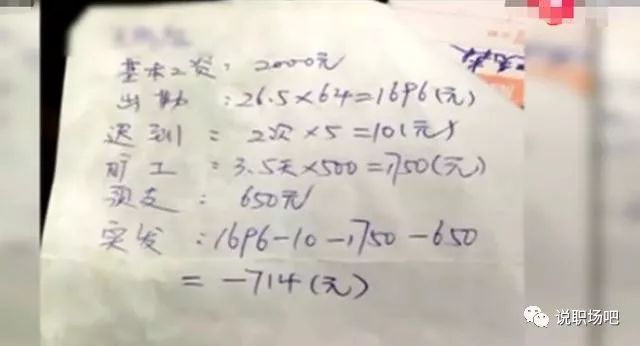 基本工资：2000元
出勤：26.5×64=1696(元)
迟到：2次×5=10(元)
旷工：3.5天×500=1,750(元)
预支：650元
实发：1696-10-1,750-650
=-714(元)
说职场吧